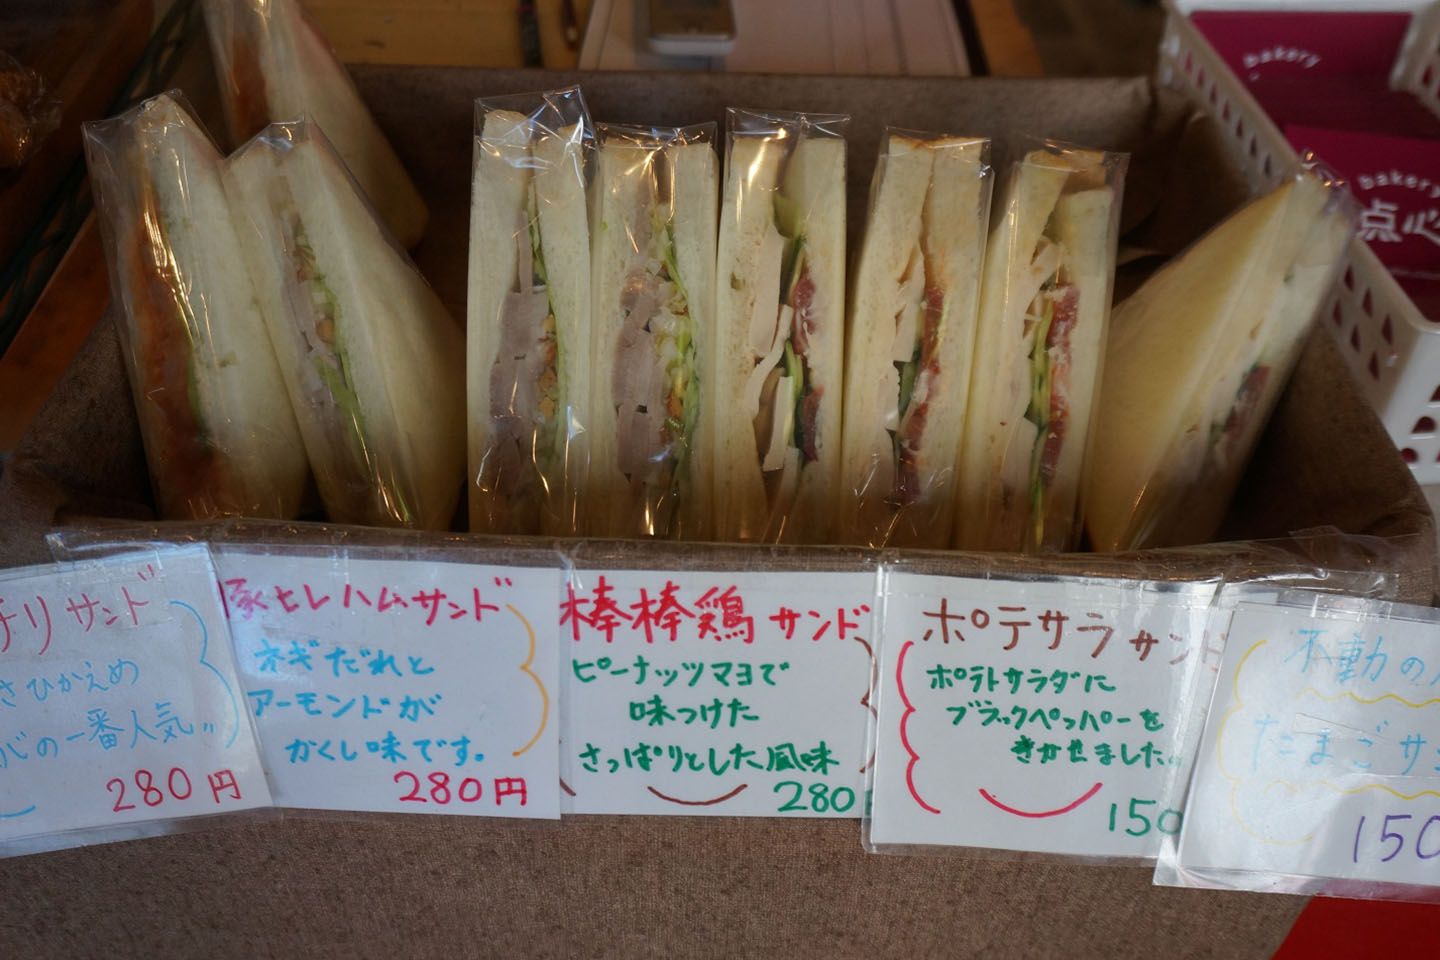 bakery
bakery
点心
チリサンド
さひかえめ
の一番人気
280円
豚ヒレハムサンド
ネギだれと
アーモンドが
かくし味です。
280円
棒棒鶏サンド
ピーナッツマヨで
味つけた
さっぱりとした風味
280
ポテサラサンド
ポテトサラダに
ブラックペッパーを
きかせました。
150
不動の
たまごサン
150